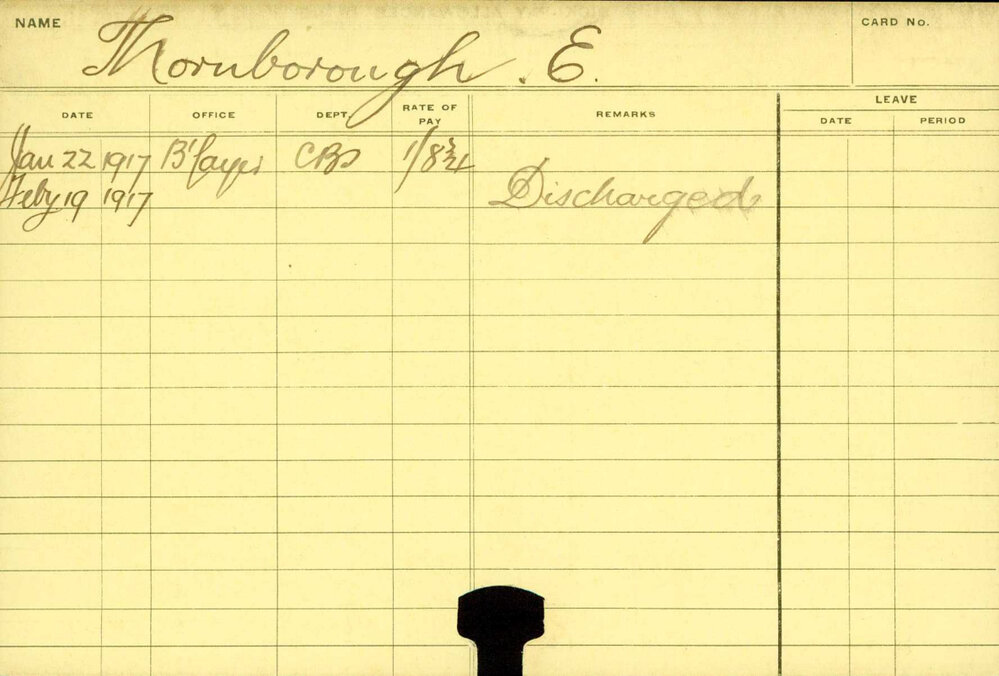 NAME
Thornborough. E.
CARD No.
DATE OFFICE DEPT. RATE OF PAY REMARKS
LEAVE
DATE PERIOD
Jan 22 1917 B'layer CBS 1/8 3/4
Feby 19 1917 Discharged